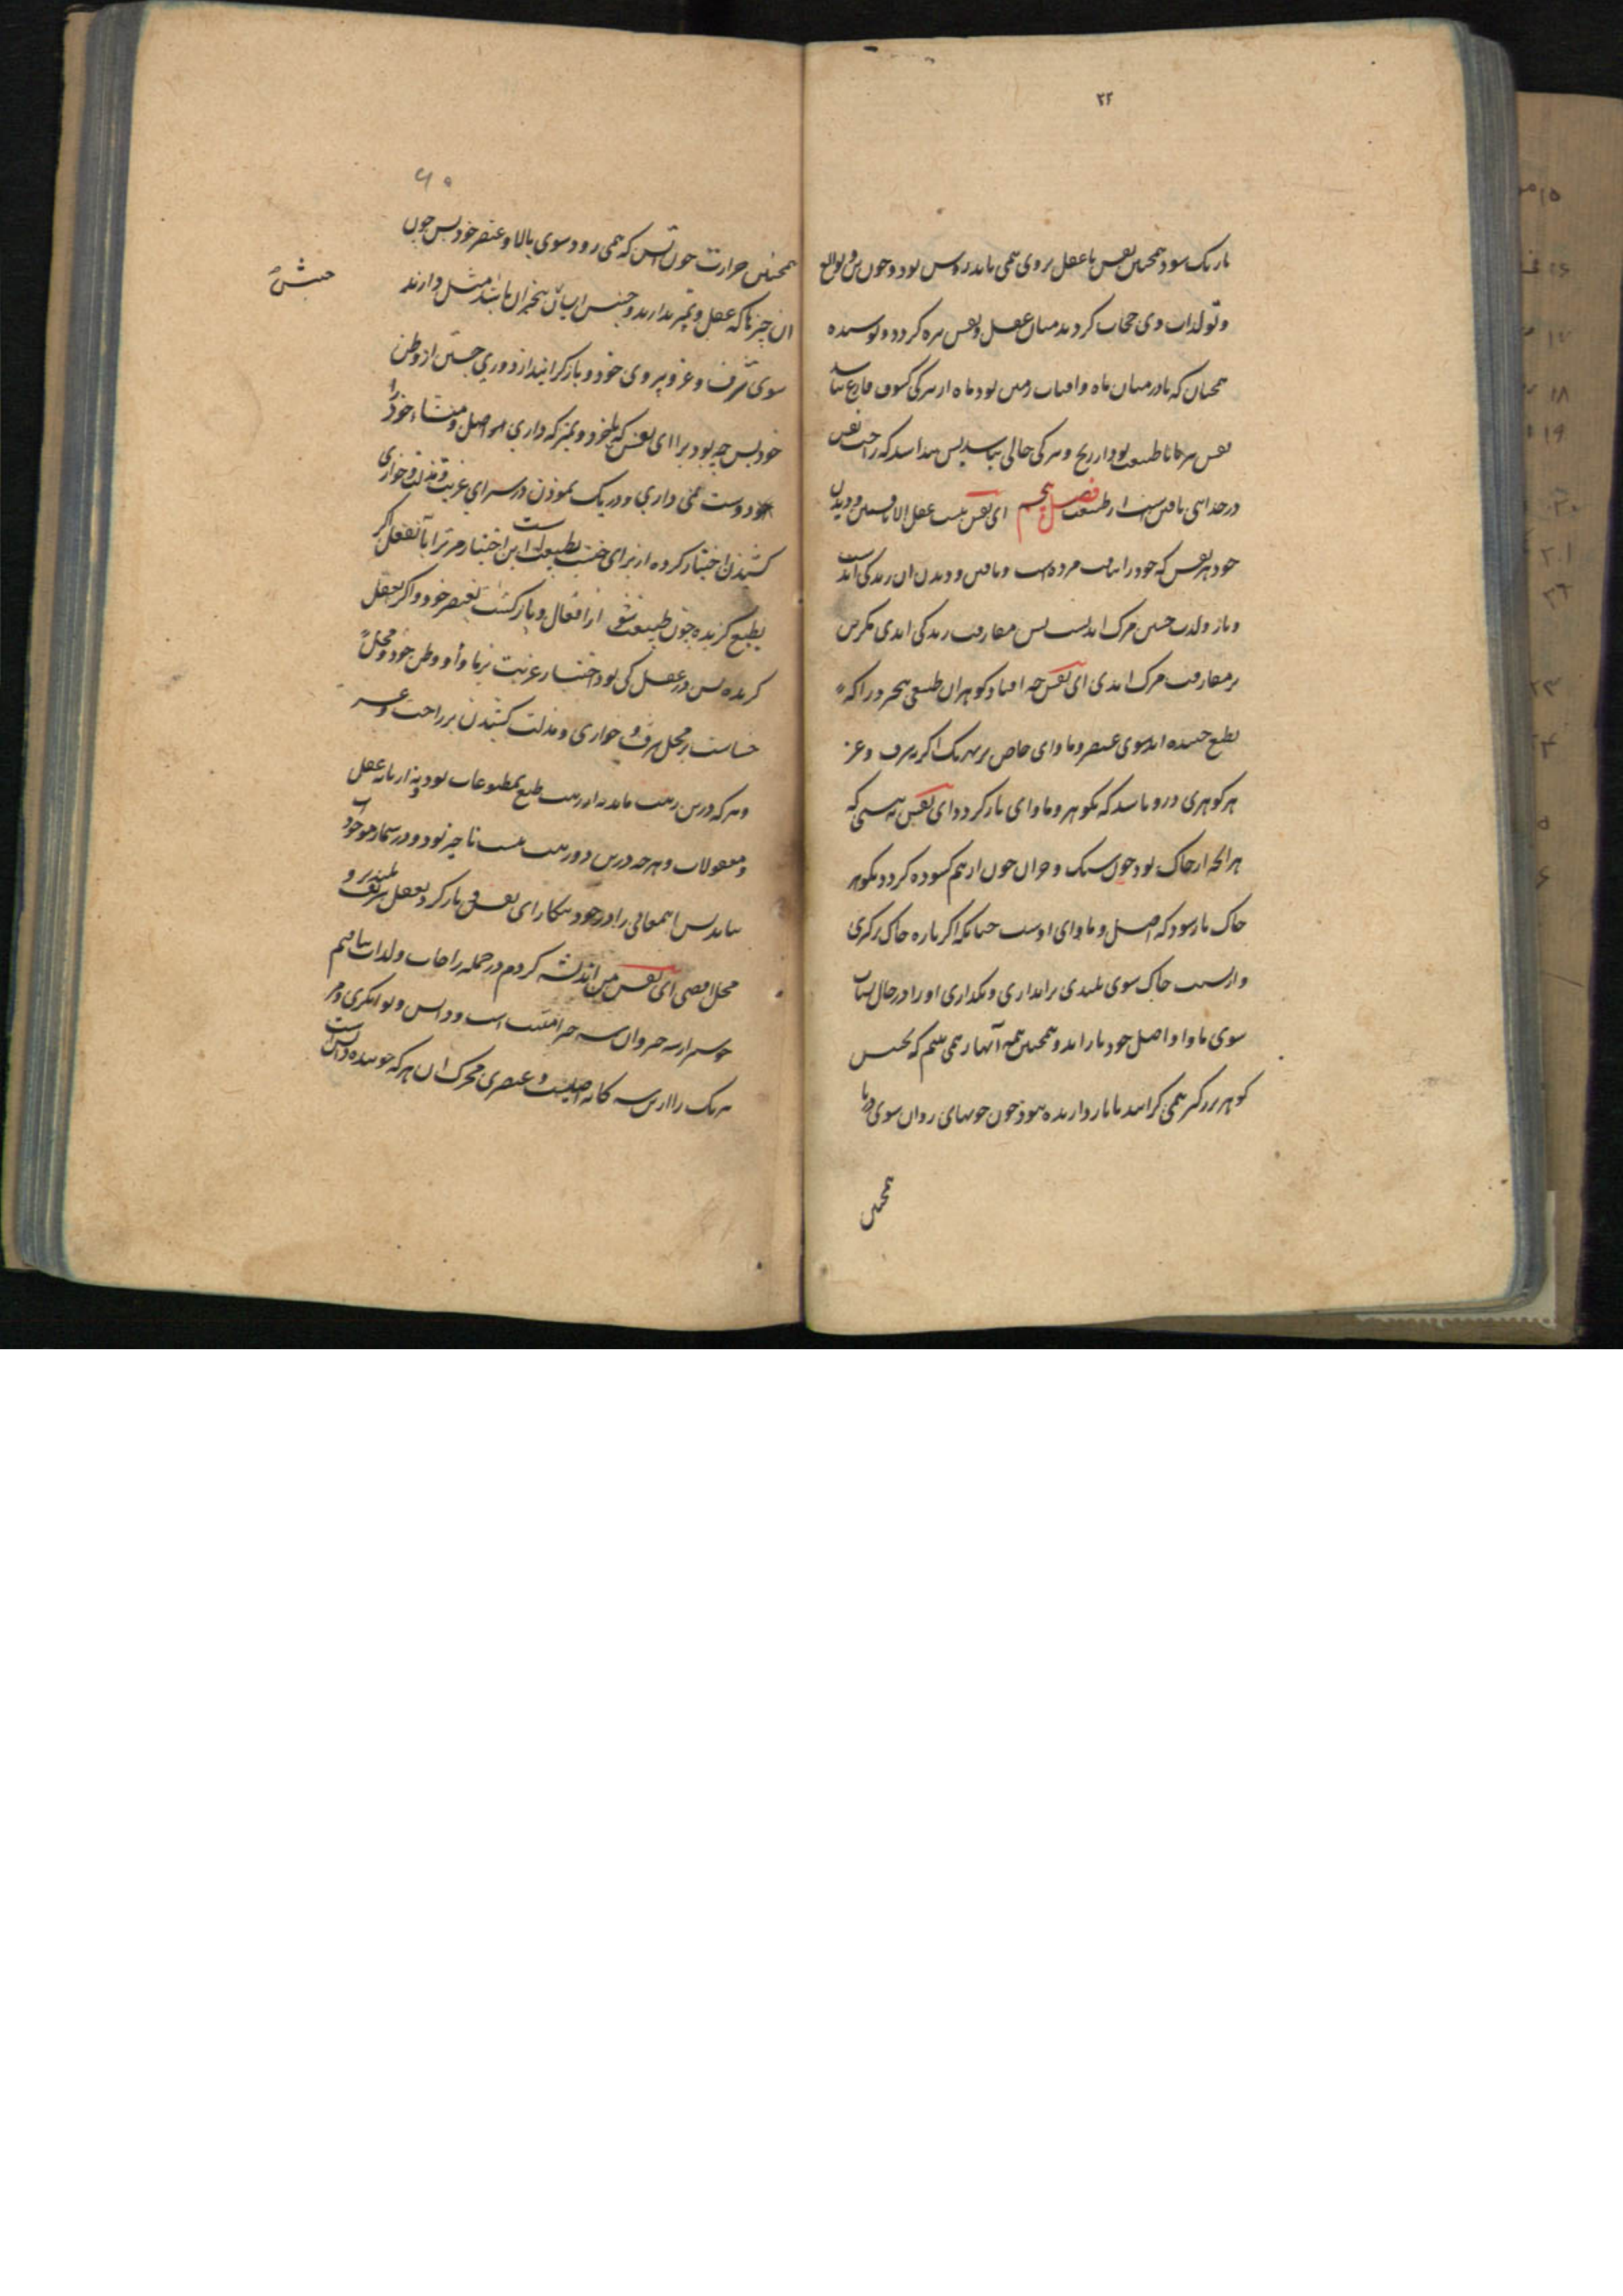 ۲۲
تاریک شود همچنین نفس با عقل بروی همی تابد روشن بود و چون تن و توابع
و تولدات وی حجاب کردند میان عقل و نفس تیره کردد و پوشیده
همچنان که تا در میان ماه و افتاب زمین بود ماه از تیرکی کسوف فارغ نباشد
نفس هر کاه با طبیعت بود از رنج و تیرکی خالی نباشد پس پیدا شد که راحت نفس
در جدایی یافتن است از طبیعت فصل پنجم ای نفس نیست عقل الا یافتن و دیدن
خود هر نفس که خود را نیافت مرده است و یافتن و دیدن ان زندکی ابدیست
و باز ولادت جسمی مرک ابدیست پس مفارقت زندکی ابدی مکزین
بر مفارقت مرک ابدی ای نفس چه افتاد کوهران طبعی بیخرد را که
بطبع جنبنده اند سوی عنصر و ماوای خاص هر یک اکر شرف و عز
هر کوهری در و باشد که بکوهر و ماوای باز کردد ای نفس نه بینی که
هر انچه از خاک بود چون سنک و جز ان چون از هم کسوده کردد بکوهر
خاک باز شود که اصل و ماوای اوست چنانکه اکر پاره خاک برکیری
و از پست خاک سوی بلندی برانداری و بکذاری او را در حال بشتاب
سوی ماوا و اصل خود باز اید و همچنین همه آبها را همی بینم که بجنس
کوهر بزرکتر همی کرایند تا باز دارنده نبود چون جویهای روان سوی دریا
همچنین
۶۵
همچنین حرارت چون آتش که همی رود سوی بالا و عنصر خود پس چون
ان چیزها که عقل و تمیز ندارند و جنبش ایشان بیخبران باشد مثل دارند
جنبش
سوی شرف و عز و پیروی خود و باز کرانیند از دوری جستن از وطن
خود پس چه بود ترا ای نفس که با خرد و تمیز که داری اصل و منشاء خود را
دوست نمی داری و درنک نمودن در سرای غربت و مذلت و خواری
کشیدن اختیار کرده از برای خست طبیعت است این اختیار مر ترا یا بعقل اکر
بطبع کزیده چون طبیعت نفی از افعال و باز کشت بعنصر خود و اکر بعقل
کزیده پس در عقل کی بود اختیار غربت بر ماوا و وطن خود و محل
خساست بر محل شرف و خواری و مذلت کشیدن بر راحت و عز
و هر که درین رتبت ماند نه از رتبت طبع مطبوعات بود و نه از رتبه عقل
و معقولات و هر چه درین دو رتبت نیست ناچیز بود و در شمار موجودات
نیاید پس این معانی را در خود بنکار ای نفس و باز کرد بعقل شریف بلند رو
محل اقصی ای نفس من اندیشه کردم در جمله راحات و لذات نیافتم
خوشتر از سه چیز و ان سه چیز امنیت است و دانش و توانکری و مر
هر یک را از این سه کانه اصلیست و عنصری محرک ان هر که جوینده دانش است